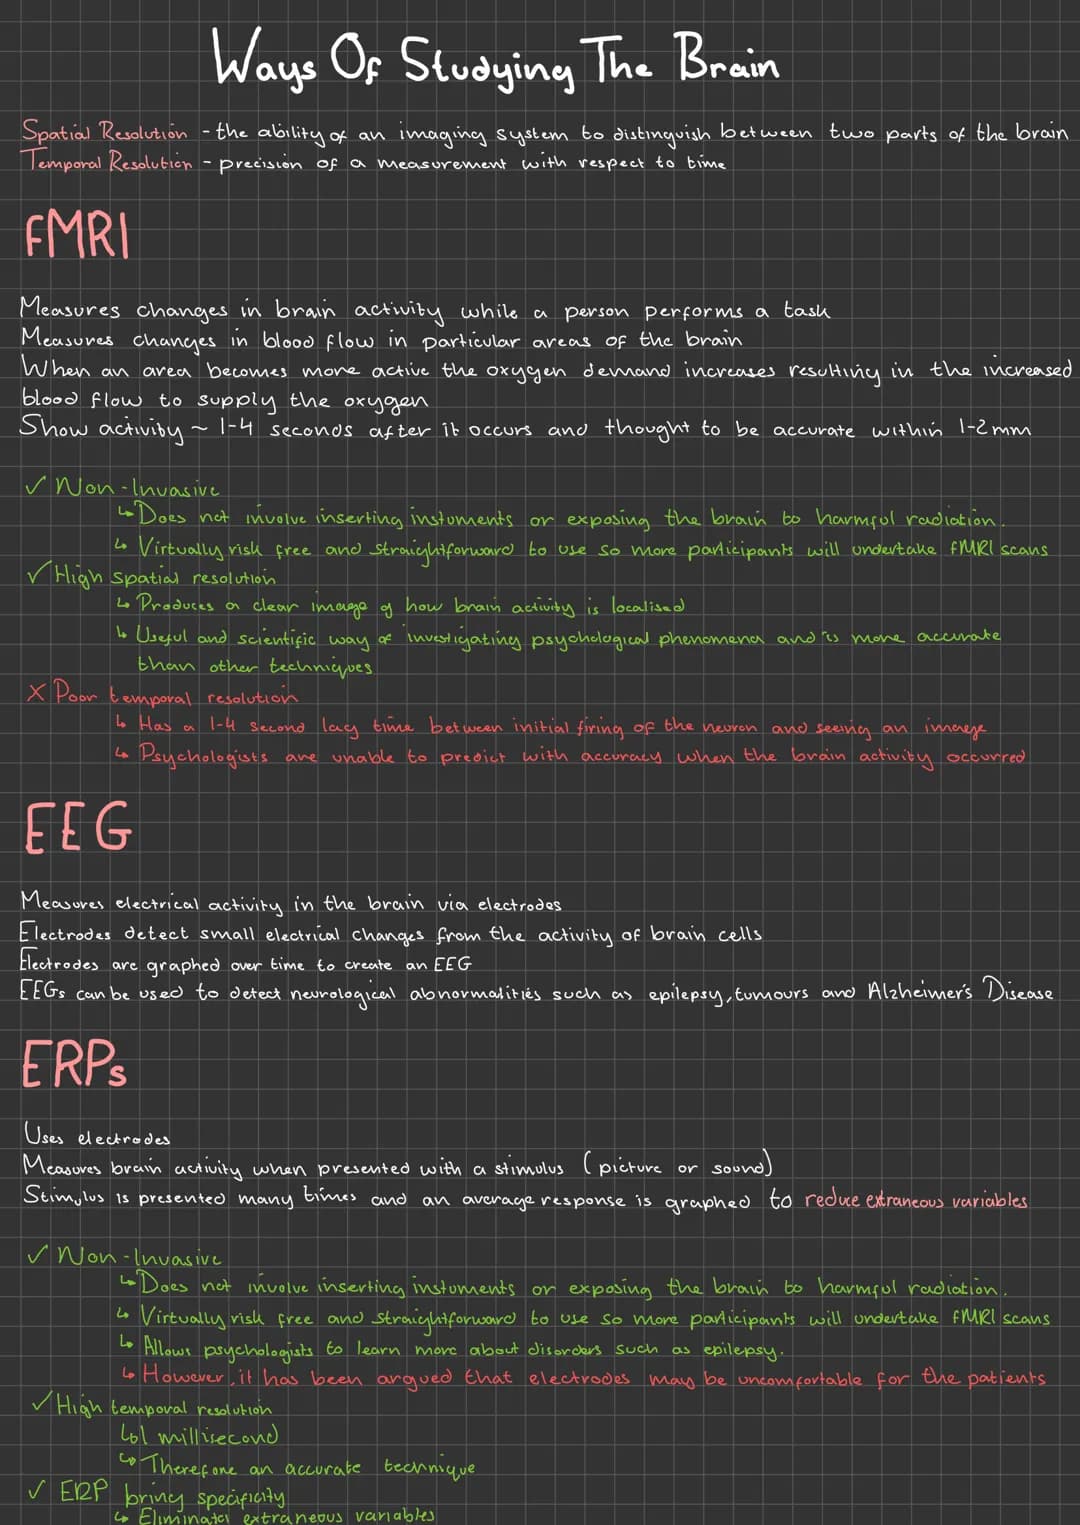 Ways Of Studying The Brain
Spatial Resolution - the ability of an imaging system to distinguish between two parts of the brain
Temporal Resolution - precision of a measurement with respect to time
fMRI
Measures changes in brain activity while a person performs a task
Measures changes in blood flow in particular areas of the brain
When an area becomes more active the oxygen demand increases resulting in the increased
blood flow to supply the oxygen
Show activity ~ 1-4 seconds after it occurs and thought to be accurate within 1-2mm
✓ Non-Invasive
↳ Does not involve inserting instuments or exposing the brain to harmful radiation.
↳ Virtually risk free and straightforward to use so more participants will undertake fMRI scans
✓ High spatial resolution
↳ Produces a clear image of how brain activity is localised
↳ Useful and scientific way of investigating psychological phenomena and is more accurate
than other techniques
X Poor temporal resolution
↳ Has a 1-4 second lag time between initial firing of the neuron and seeing an image
↳ Psychologists are unable to predict with accuracy when the brain activity occurred
EEG
Measures electrical activity in the brain via electrodes
Electrodes detect small electrical changes from the activity of brain cells
Electrodes are graphed over time to create an EEG
EEGs can be used to detect neurological abnormalities such as epilepsy, tumours and Alzheimer's Disease
ERPs
Uses electrodes
Measures brain activity when presented with a stimulus (picture or sound)
Stimulus is presented many times and an average response is graphed to reduce extraneous variables
✓ Non-Invasive
↳ Does not involve inserting instuments or exposing the brain to harmful radiation.
↳ Virtually risk free and straightforward to use so more participants will undertake fMRI scans
↳ Allows psychologists to learn more about disorders such as epilepsy.
↳ However, it has been argued that electrodes may be uncomfortable for the patients
✓ High temporal resolution
↳ 1 millisecond
↳ Therefore an accurate technique
✓ ERP bring specificity
↳ Eliminates extraneous variables